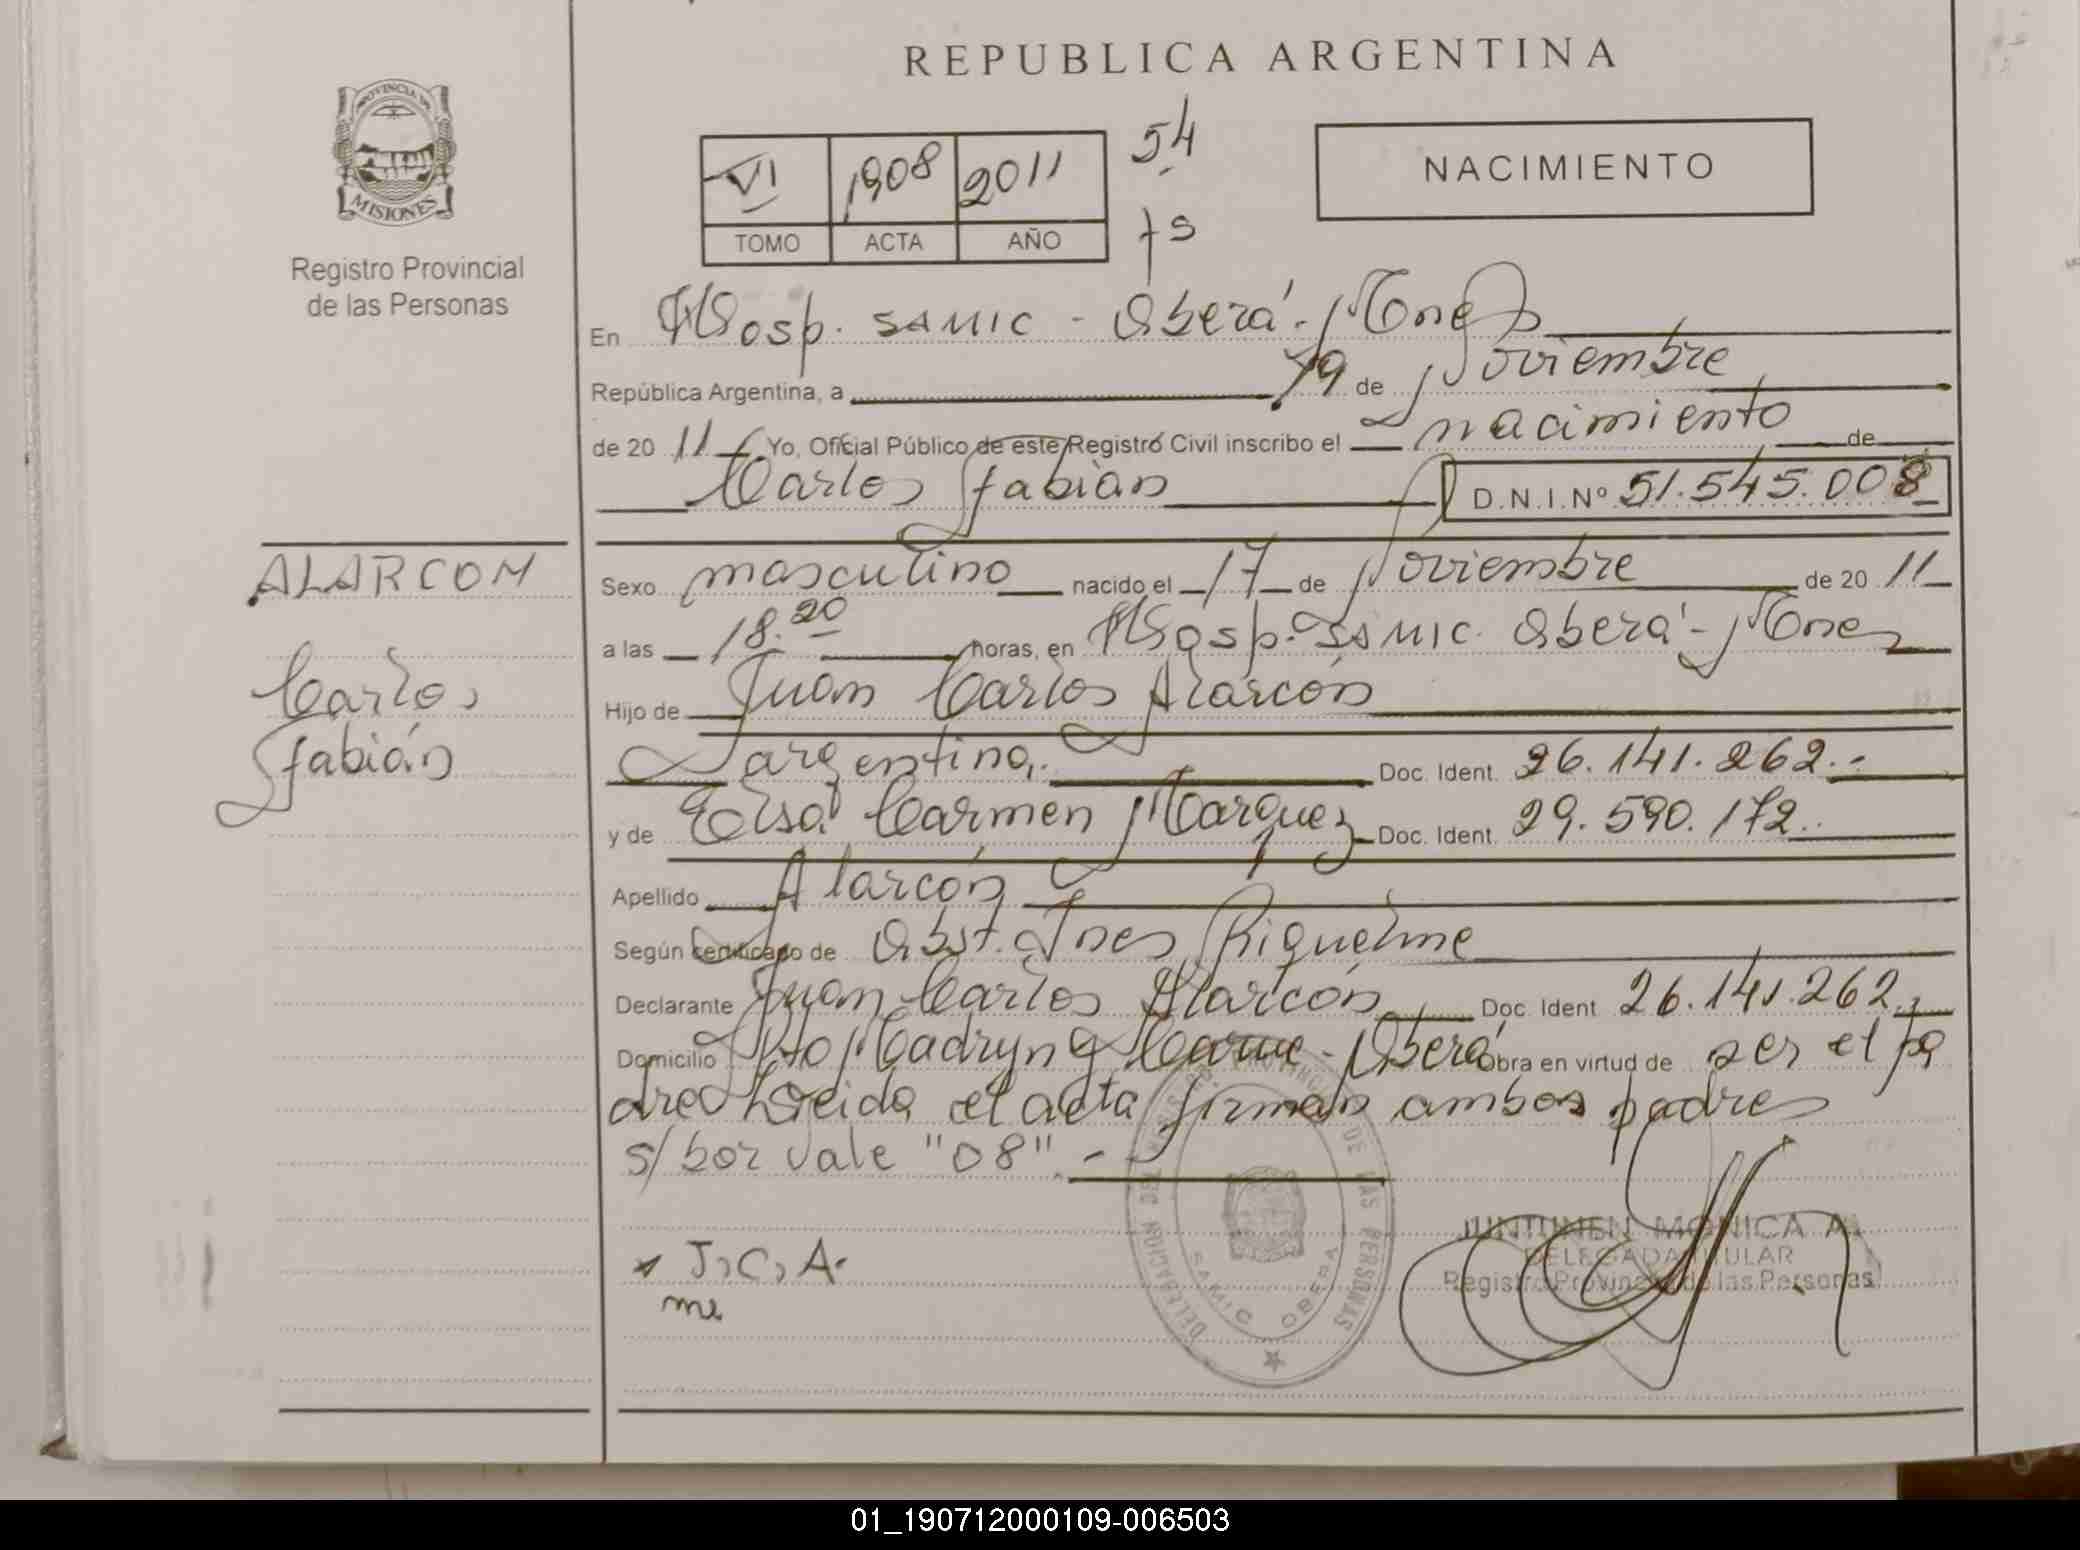 REPUBLICA ARGENTINA
PROVINCIA DE
MISIONES
Registro Provincial
de las Personas
VI 1908 2011
TOMO ACTA AÑO
54
fs
NACIMIENTO
En Hosp. SAMIC - Oberá - Mnes
República Argentina, a 19 de Noviembre
de 20 11 Yo, Oficial Público de este Registro Civil inscribo el nacimiento de
Carlos Fabián
D.N.I.Nº 51.545.008
ALARCON
Carlos
Fabián
Sexo masculino nacido el 17 de Noviembre de 20 11
a las 18.20 horas, en Hosp. SAMIC. Oberá - Mnes
Hijo de Juan Carlos Alarcón
argentino,. Doc. Ident. 26.141.262.-
y de Elsa Carmen Marquez Doc. Ident. 29.590.172..
Apellido Alarcón
Según certificado de Obst. Ines Riquelme
Declarante Juan Carlos Alarcón Doc. Ident. 26.141.262.
Domicilio Pto Madryn y - Oberá Obra en virtud de ser el pa
dre Leida el acta firman ambos padres
s/bor vale "08" -
J, C, A.
me
DELEGACION DEL REGISTRO PROVINCIAL DE LAS PERSONAS
SAMIC OBERA
JUNTUNEN MONICA A.
DELEGADA TITULAR
Registro Provincial de las Personas
01_190712000109-006503